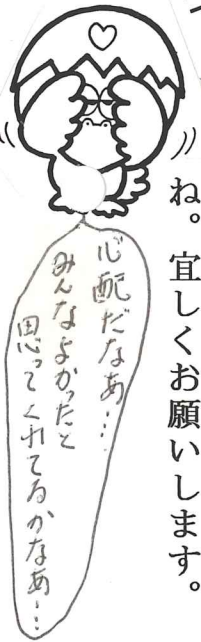 ね。宜しくお願いします。
心配だなあ…
みんなよかったと
思ってくれてるかなあ…